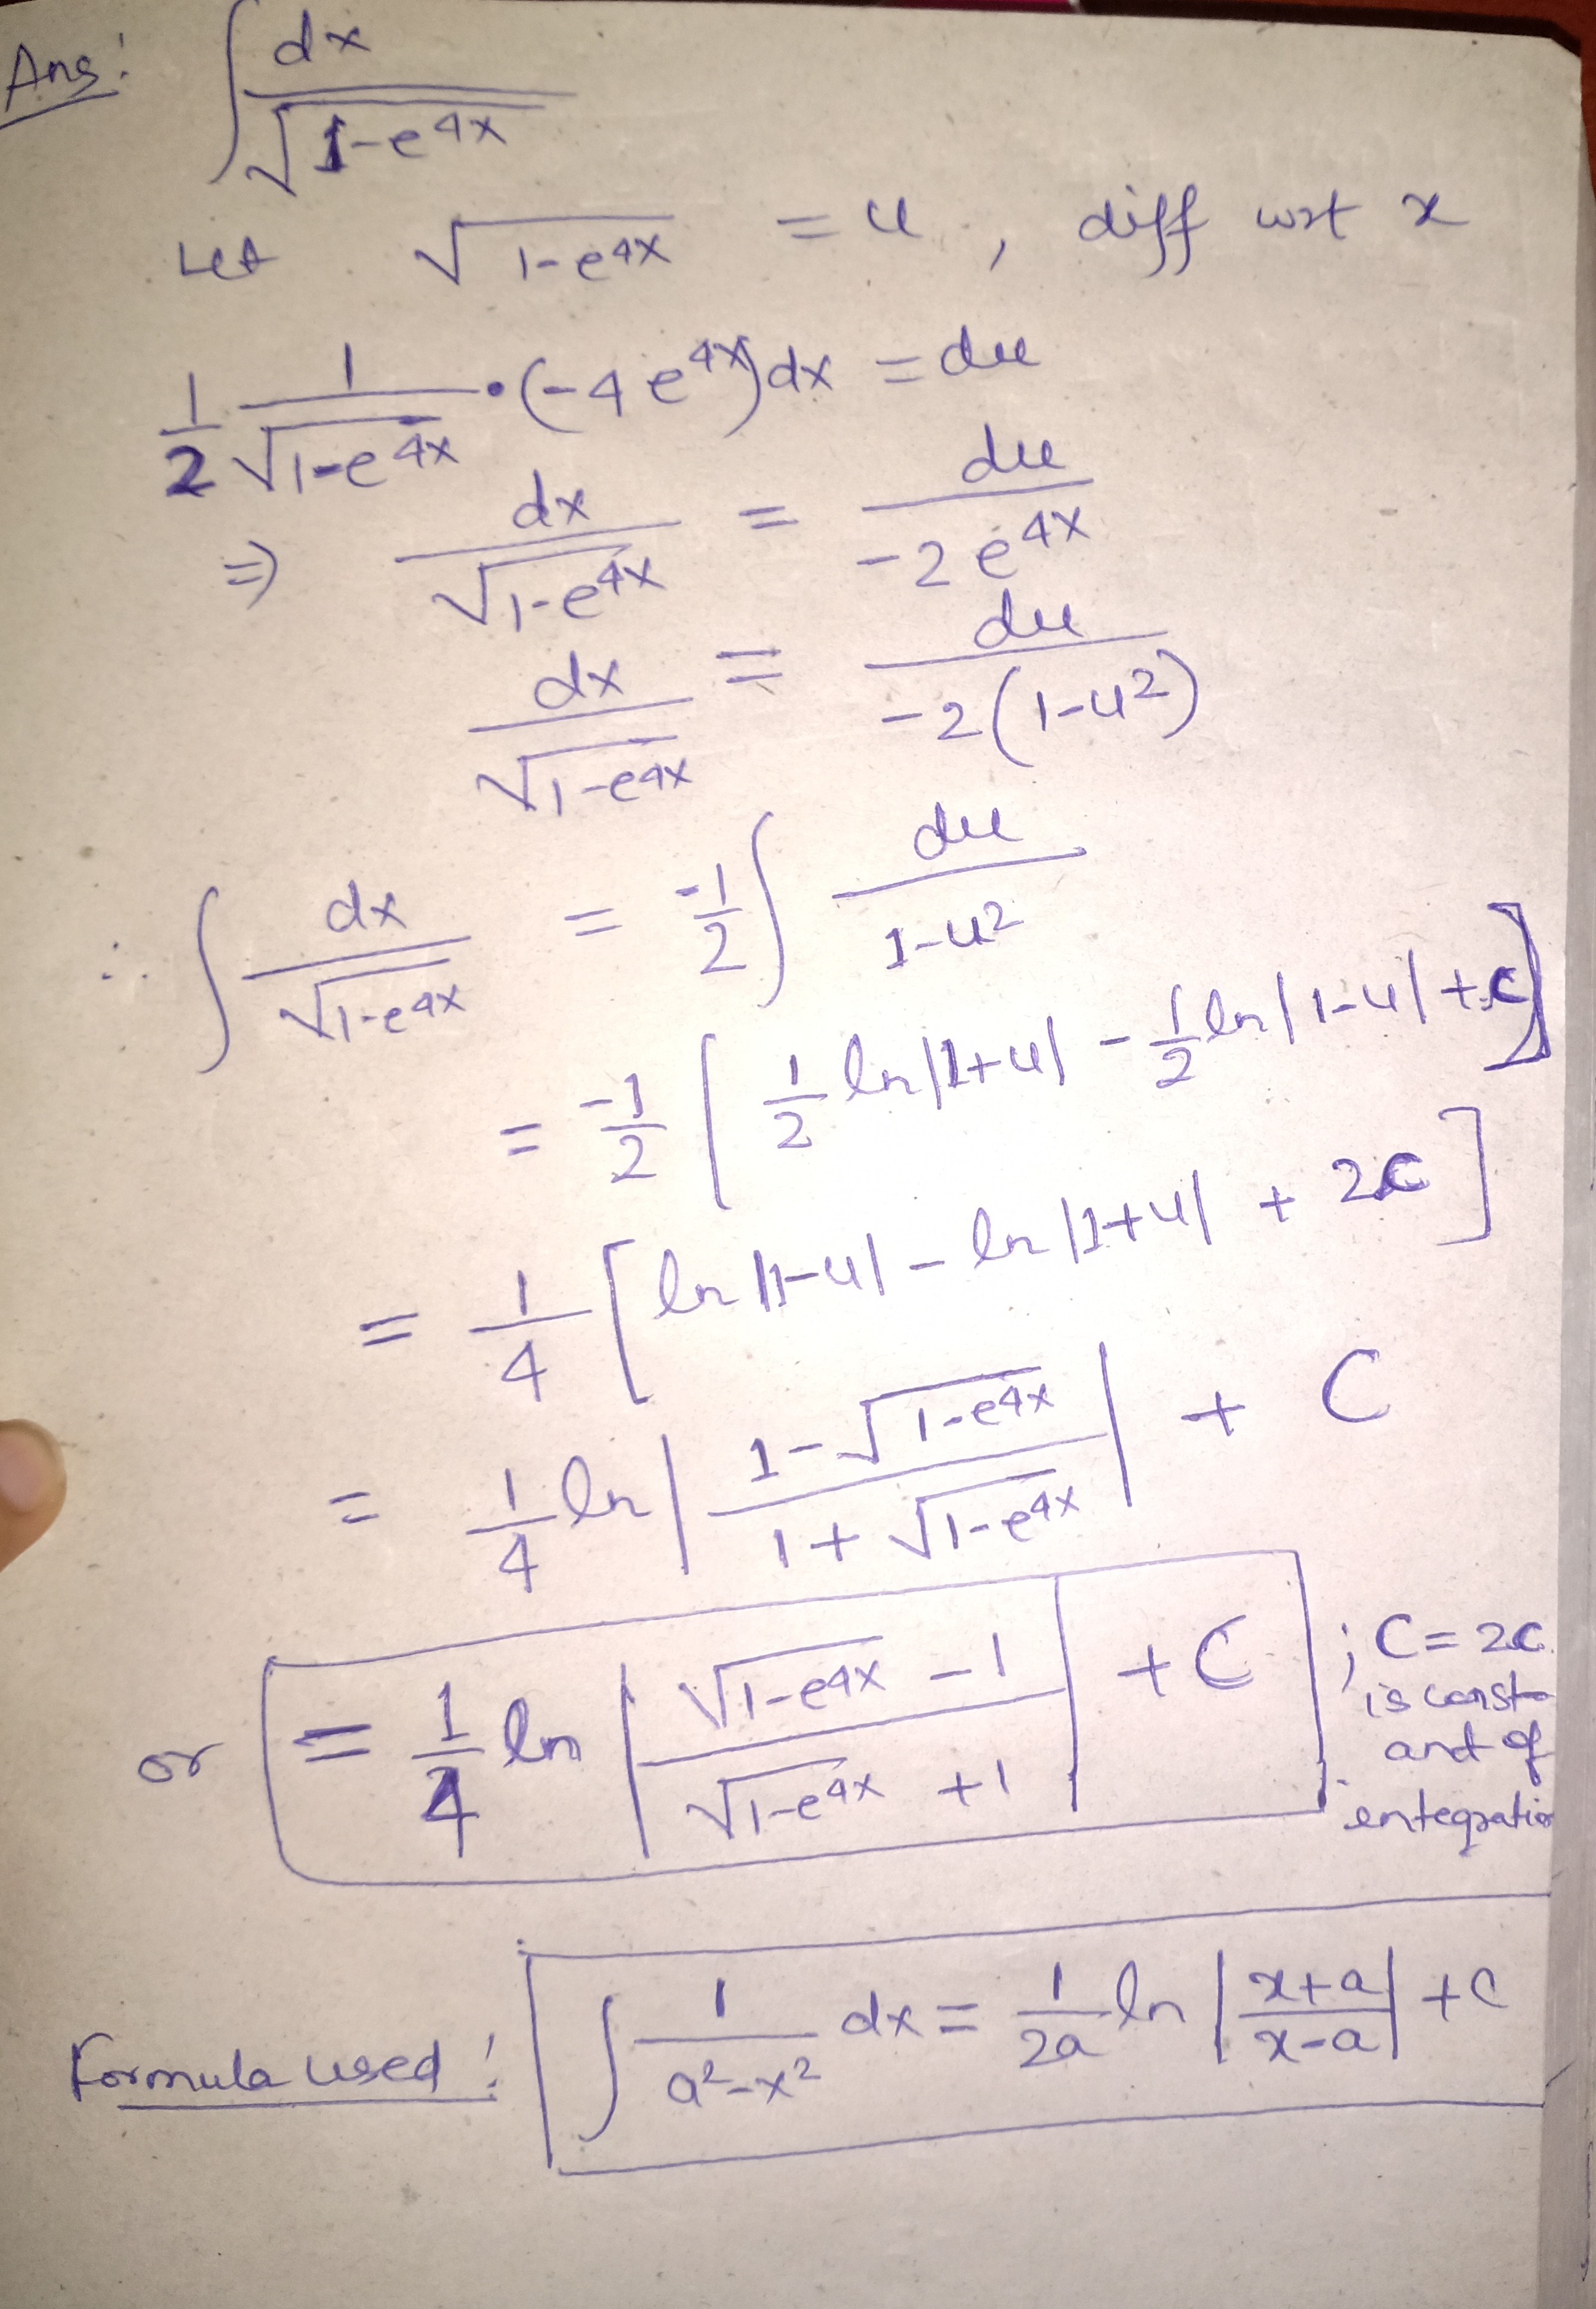 Ans: ∫ dx / √(1-e^4x)
Let √(1-e^4x) = u , diff wrt x
1/2 1/√(1-e^4x) · (-4e^4x)dx = du
⇒ dx/√(1-e^4x) = du/(-2e^4x)
dx/√(1-e^4x) = du/(-2(1-u²))
∴ ∫ dx/√(1-e^4x) = -1/2 ∫ du/(1-u²)
= -1/2 [1/2 ln|1+u| - 1/2 ln|1-u| + c]
= 1/4 [ln|1-u| - ln|1+u| + 2c]
= 1/4 ln |(1-√(1-e^4x))/(1+√(1-e^4x))| + C
or = 1/4 ln |(√(1-e^4x) -1)/(√(1-e^4x) +1)| + C ; C=2c
is const
ant of
integration
Formula used: ∫ 1/(a²-x²) dx = 1/2a ln |(x+a)/(x-a)| + c